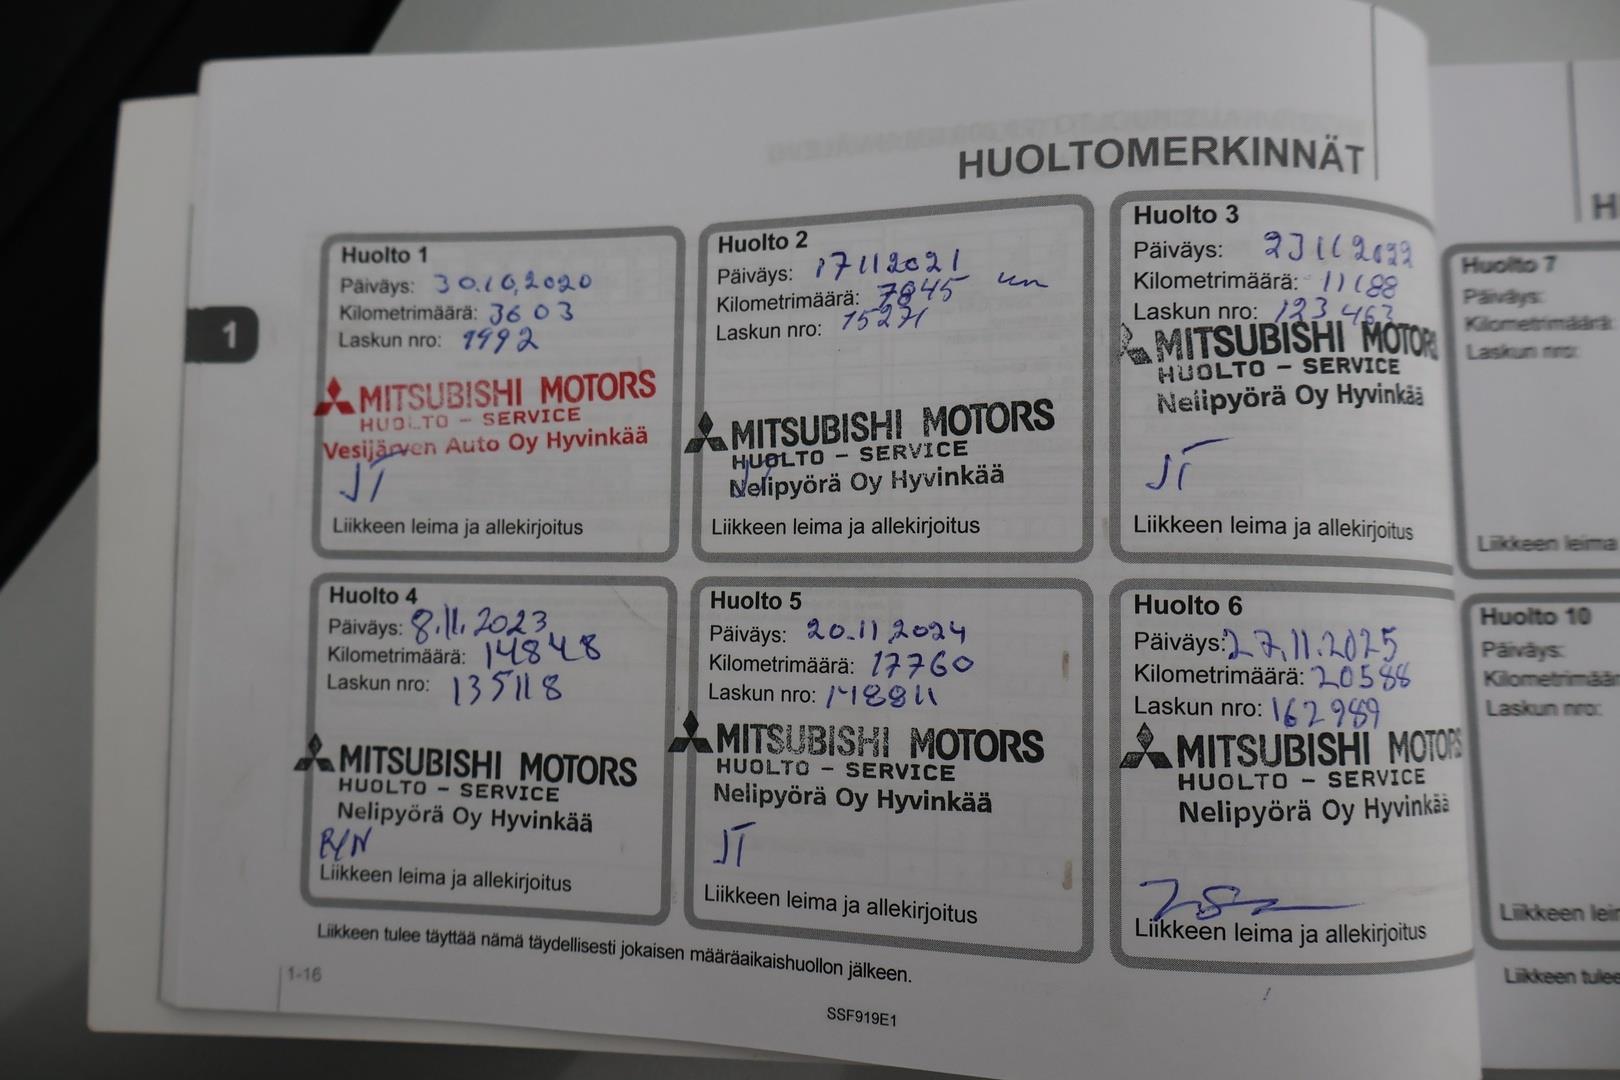 HUOLTOMERKINNÄT
1
Huolto 1
Päiväys: 30.10.2020
Kilometrimäärä: 3603
Laskun nro: 1992
MITSUBISHI MOTORS
HUOLTO - SERVICE
Vesijärven Auto Oy Hyvinkää
JT
Liikkeen leima ja allekirjoitus
Huolto 2
Päiväys: 17112021
Kilometrimäärä: 7845
Laskun nro: 15271
MITSUBISHI MOTORS
HUOLTO - SERVICE
Nelipyörä Oy Hyvinkää
Liikkeen leima ja allekirjoitus
Huolto 3
Päiväys: 23112022
Kilometrimäärä: 11188
Laskun nro: 123463
MITSUBISHI MOTORS
HUOLTO - SERVICE
Nelipyörä Oy Hyvinkää
JT
Liikkeen leima ja allekirjoitus
Huolto 4
Päiväys: 8.11.2023
Kilometrimäärä: 14848
Laskun nro: 135118
MITSUBISHI MOTORS
HUOLTO - SERVICE
Nelipyörä Oy Hyvinkää
Liikkeen leima ja allekirjoitus
Huolto 5
Päiväys: 20.11.2024
Kilometrimäärä: 17760
Laskun nro: 148811
MITSUBISHI MOTORS
HUOLTO - SERVICE
Nelipyörä Oy Hyvinkää
JT
Liikkeen leima ja allekirjoitus
Huolto 6
Päiväys: 27.11.2025
Kilometrimäärä: 20588
Laskun nro: 162989
MITSUBISHI MOTORS
HUOLTO - SERVICE
Nelipyörä Oy Hyvinkää
Liikkeen leima ja allekirjoitus
Liikkeen tulee täyttää nämä täydellisesti jokaisen määräaikaishuollon jälkeen.
1-16
SSF919E1
H
Huolto 7
Päiväys:
Kilometrimäärä:
Laskun nro:
Liikkeen leima
Huolto 10
Päiväys:
Kilometrimäärä
Laskun nro:
Liikkeen leim
Liikkeen tulee